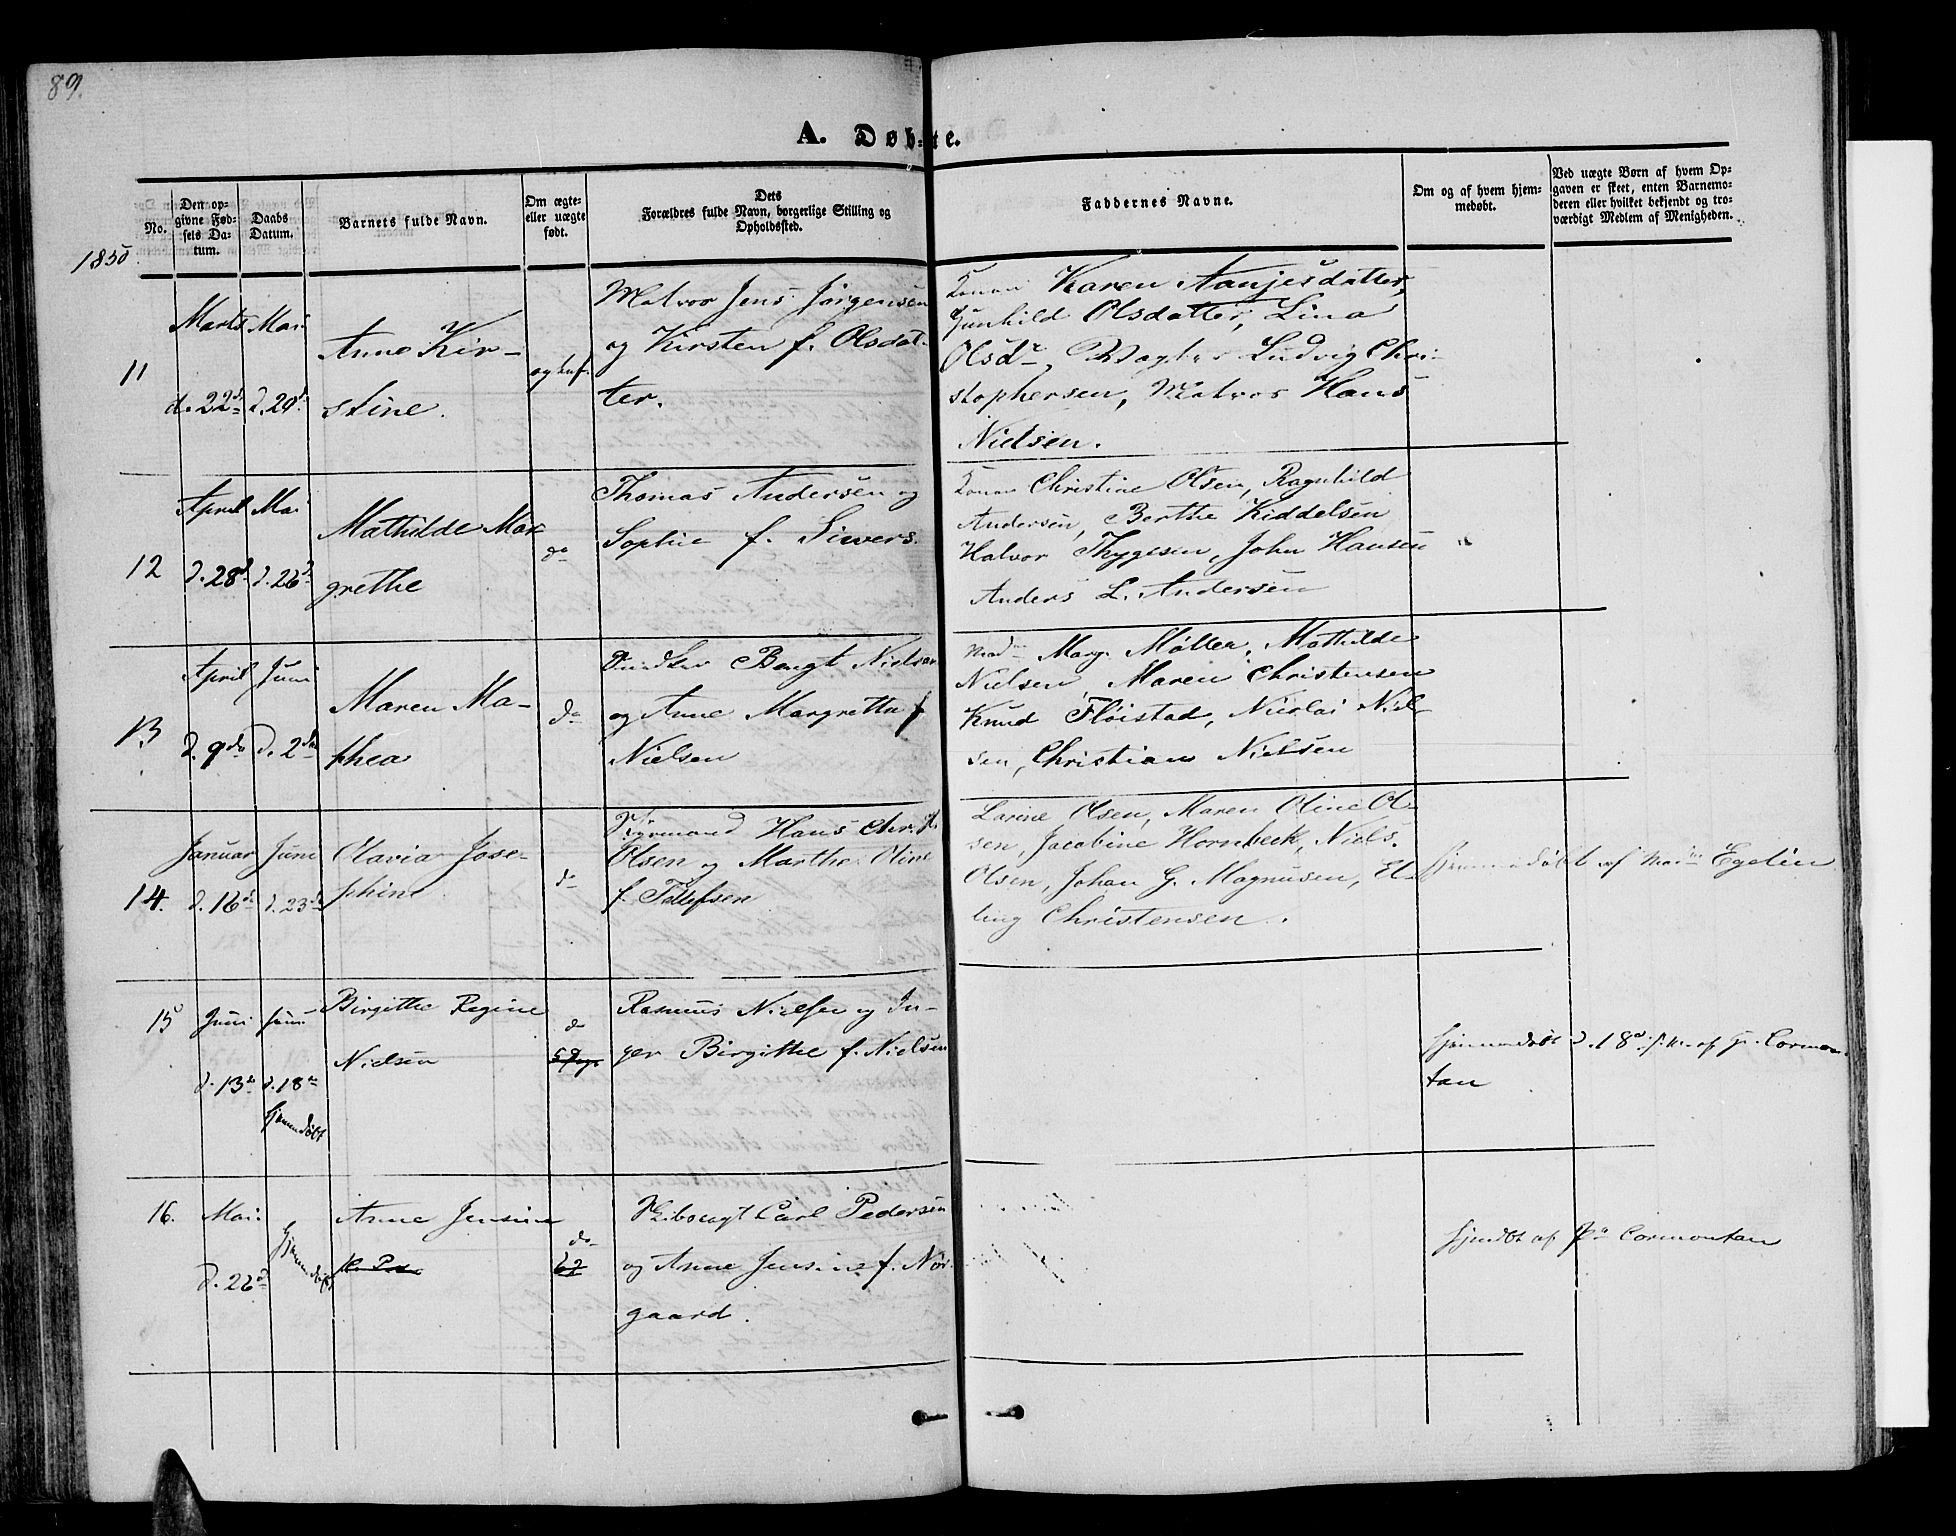 89.
A. Døbte.
No.
Den op-
givne Fød-
sels Da-
tum.
Daabs
Datum.
Barnets fulde Navn.
Om ægte-
eller uægte
født.
Dets
Forældres fulde Navn, borgerlige Stilling og
Opholdssted.
Faddernes Navne.
Om og af hvem hjem-
medøbt.
Ved uægte Børn af hvem Op-
gaven er skeet, enten Barnemo-
deren eller hvilket bekjendt og tro-
værdigt Medlem af Menigheden.
1850
11
Marts
d. 22d
Mai
d. 29d
Anne Kir-
stine.
ægtef.
Matros Jens Jørgensen
og Kirsten f. Olsdat-
ter.
Konen Karen Aanjesdatter,
Gunhild Olsdatter, Lina
Olsdr, Ludvig Chri-
stophersen, Matros Hans
Nielsen.
12
April
d. 28d
Mai
d. 26d
Mathilde Mar
grethe
do
Thomas Andersen og
Sophie f. Siwers.
Konen Christine Olsen, Ragnhild
Andersen, Berthe Kiddelsen
Halvor Thygesen, John Hansen
Anders L. Andersen
13
April
d. 9de
Juni
d. 2den
Maren Ma-
thea
do
Snedker Bengt Nielsen
og Anne Margrethe f
Nielsen
Mad Marg. Møller, Mathilde
Nielsen, Maren Christensen
Knud Fløistad, Nicolai Niel
sen, Christian Nielsen
14.
Januar
d. 16de
Juni
d. 23de
Olavia Jose-
phine
do
Styrmand Hans Chr.
Olsen og Marthe Oline
f. Tellefsen
Larine Olsen, Maren Oline Ol-
sen, Jacobine Hornbeck, Niels
Olsen, Johan G. Magnusen, El-
ling Christensen.
hjemmedøbt af Mad Egelin
15
Juni
d. 13de
Juni
d. 18de
hjemmedøbt
Birgithe Regine
Nielsen
do
5 Dage
Rasmus Nielsen og In-
ger Birgitthe f. Nielsen
hjemmedøbt d. 18d af Hr. Cormon-
tan
16.
Mai
d. 26d
hjemmedøbt
Anne Jensine
do
Skibsbygt Carl Pedersen
og Anne Jensine f. Nør-
gaard.
hjemdbt af Cormontan